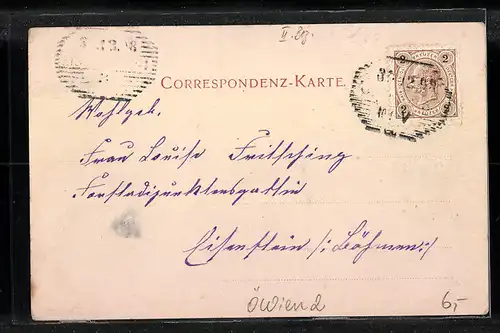 II. 28.
CORRESPONDENZ-KARTE.
2 2
2 2
Wohlgeb.
Frau Louise Fritsching
Forstadjunktensgattin
Eisenstein /: Böhmen :/
ÖWien 2
6,-